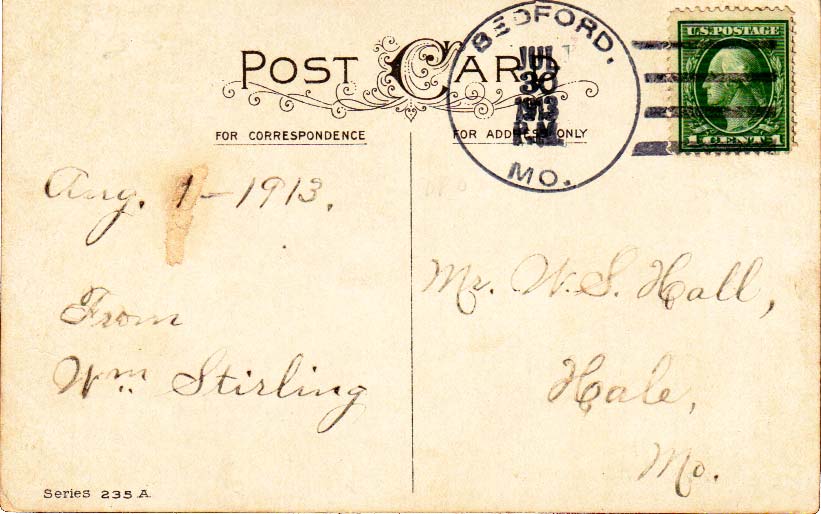 POST CARD
FOR CORRESPONDENCE
FOR ADDRESS ONLY
BEDFORD,
JUL
30
1913
P.M.
MO.
U.S. POSTAGE
1 CENT 1
Aug. 1 - 1913.
From
Wm. Stirling
Mr. W. S. Hall,
Hale,
Mo.
Series 235 A